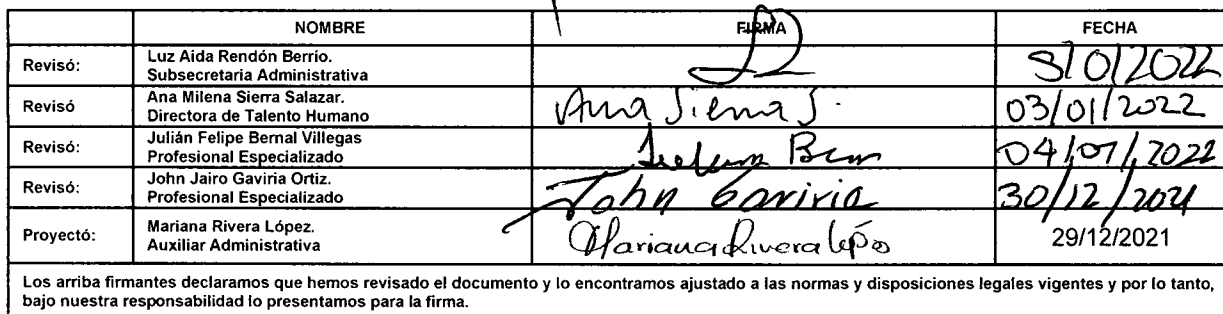 NOMBRE FIRMA FECHA
Revisó: Luz Aida Rendón Berrio.
Subsecretaria Administrativa
Revisó Ana Milena Sierra Salazar.
Directora de Talento Humano
Ana Sierra S. 03/01/2022
Revisó: Julián Felipe Bernal Villegas
Profesional Especializado
04/01/2022
Revisó: John Jairo Gaviria Ortiz.
Profesional Especializado
John Gaviria 30/12/2021
Proyectó: Mariana Rivera López.
Auxiliar Administrativa
Mariana Rivera López 29/12/2021
Los arriba firmantes declaramos que hemos revisado el documento y lo encontramos ajustado a las normas y disposiciones legales vigentes y por lo tanto,
bajo nuestra responsabilidad lo presentamos para la firma.